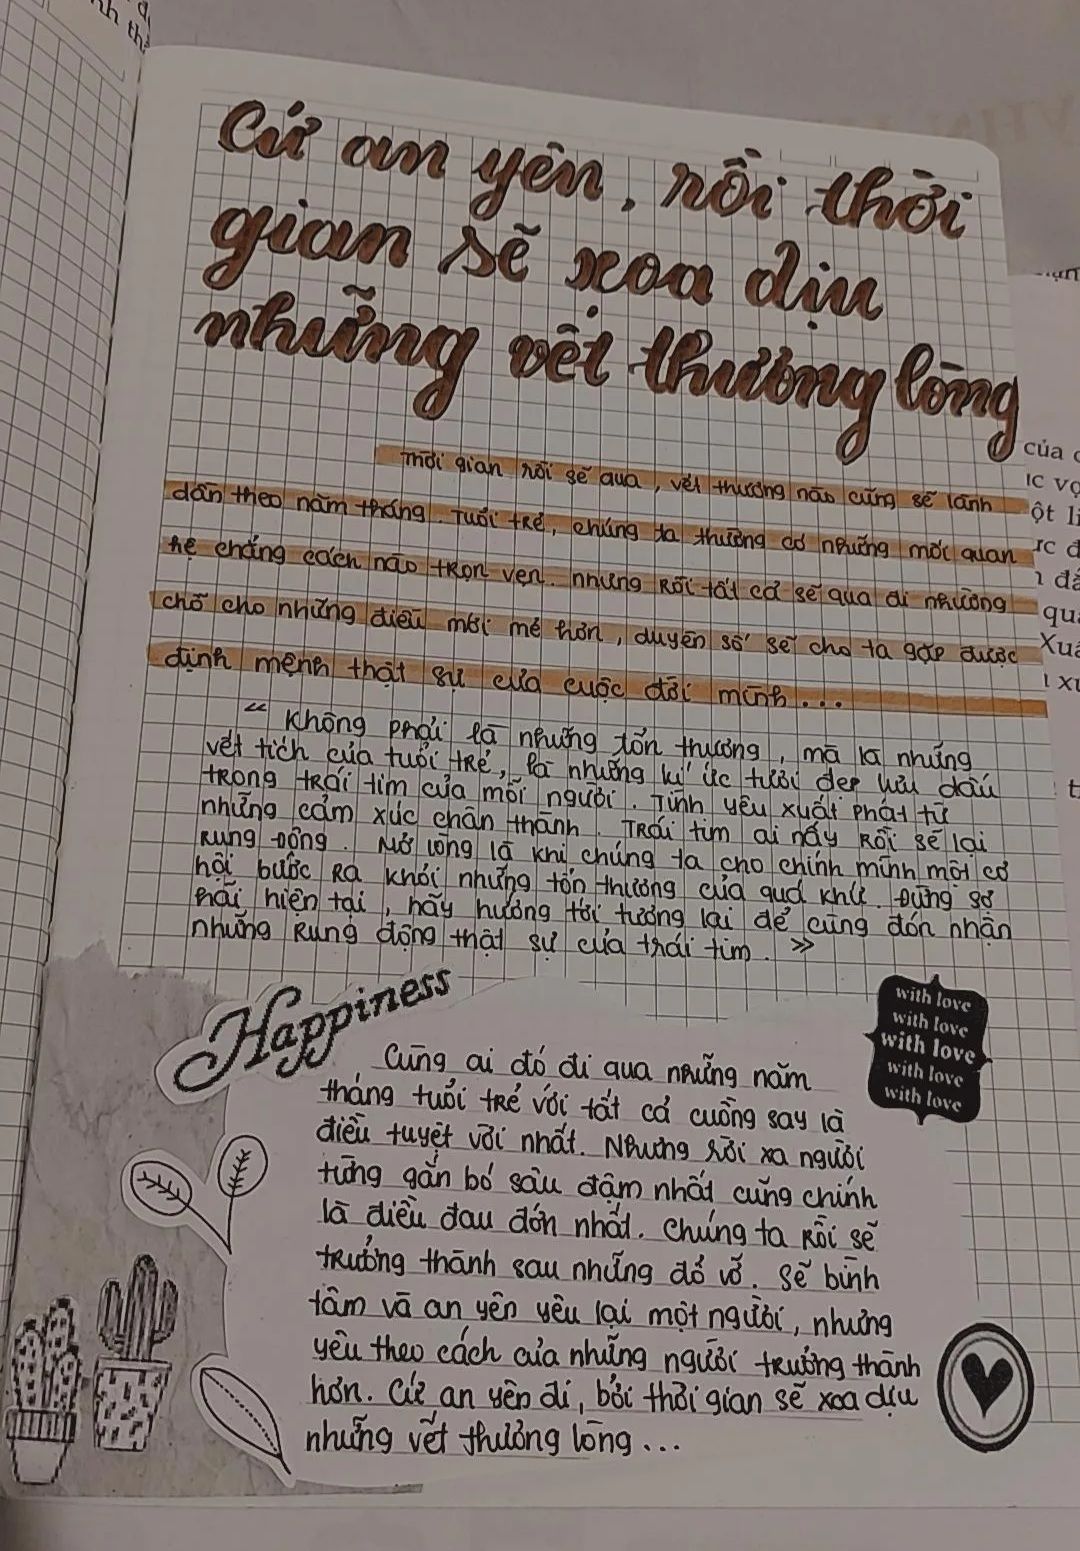 Cứ an yên, rồi thời
gian sẽ xoa dịu
những vết thương lòng
Thời gian rồi sẽ qua, vết thương nào cũng sẽ lành
dần theo năm tháng. Tuổi trẻ, chúng ta thường có những mối quan
hệ chẳng cách nào trọn vẹn. Nhưng rồi tất cả sẽ qua đi nhường
chỗ cho những điều mới mẻ hơn, duyên số sẽ cho ta gặp được
định mệnh thật sự của cuộc đời mình...
“ Không phải là những tổn thương, mà là những
vết tích của tuổi trẻ, là những ký ức tươi đẹp hữu dấu
trong trái tim của mỗi người. Tình yêu xuất phát từ
những cảm xúc chân thành. Trái tim ai nấy rồi sẽ lại
rung động. Mở lòng là khi chúng ta cho chính mình một cơ
hội bước ra khỏi những tổn thương của quá khứ. Đừng sợ
hãi hiện tại, hãy hướng tới tương lai để cùng đón nhận
những rung động thật sự của trái tim. »
Happiness
with love
with love
with love
with love
with love
Cùng ai đó đi qua những năm
tháng tuổi trẻ với tất cả cuồng say là
điều tuyệt vời nhất. Nhưng rời xa người
từng gắn bó sâu đậm nhất cũng chính
là điều đau đớn nhất. Chúng ta rồi sẽ
trưởng thành sau những đổ vỡ. Sẽ bình
tâm và an yên yêu lại một người, nhưng
yêu theo cách của những người trưởng thành
hơn. Cứ an yên đi, bởi thời gian sẽ xoa dịu
những vết thương lòng...